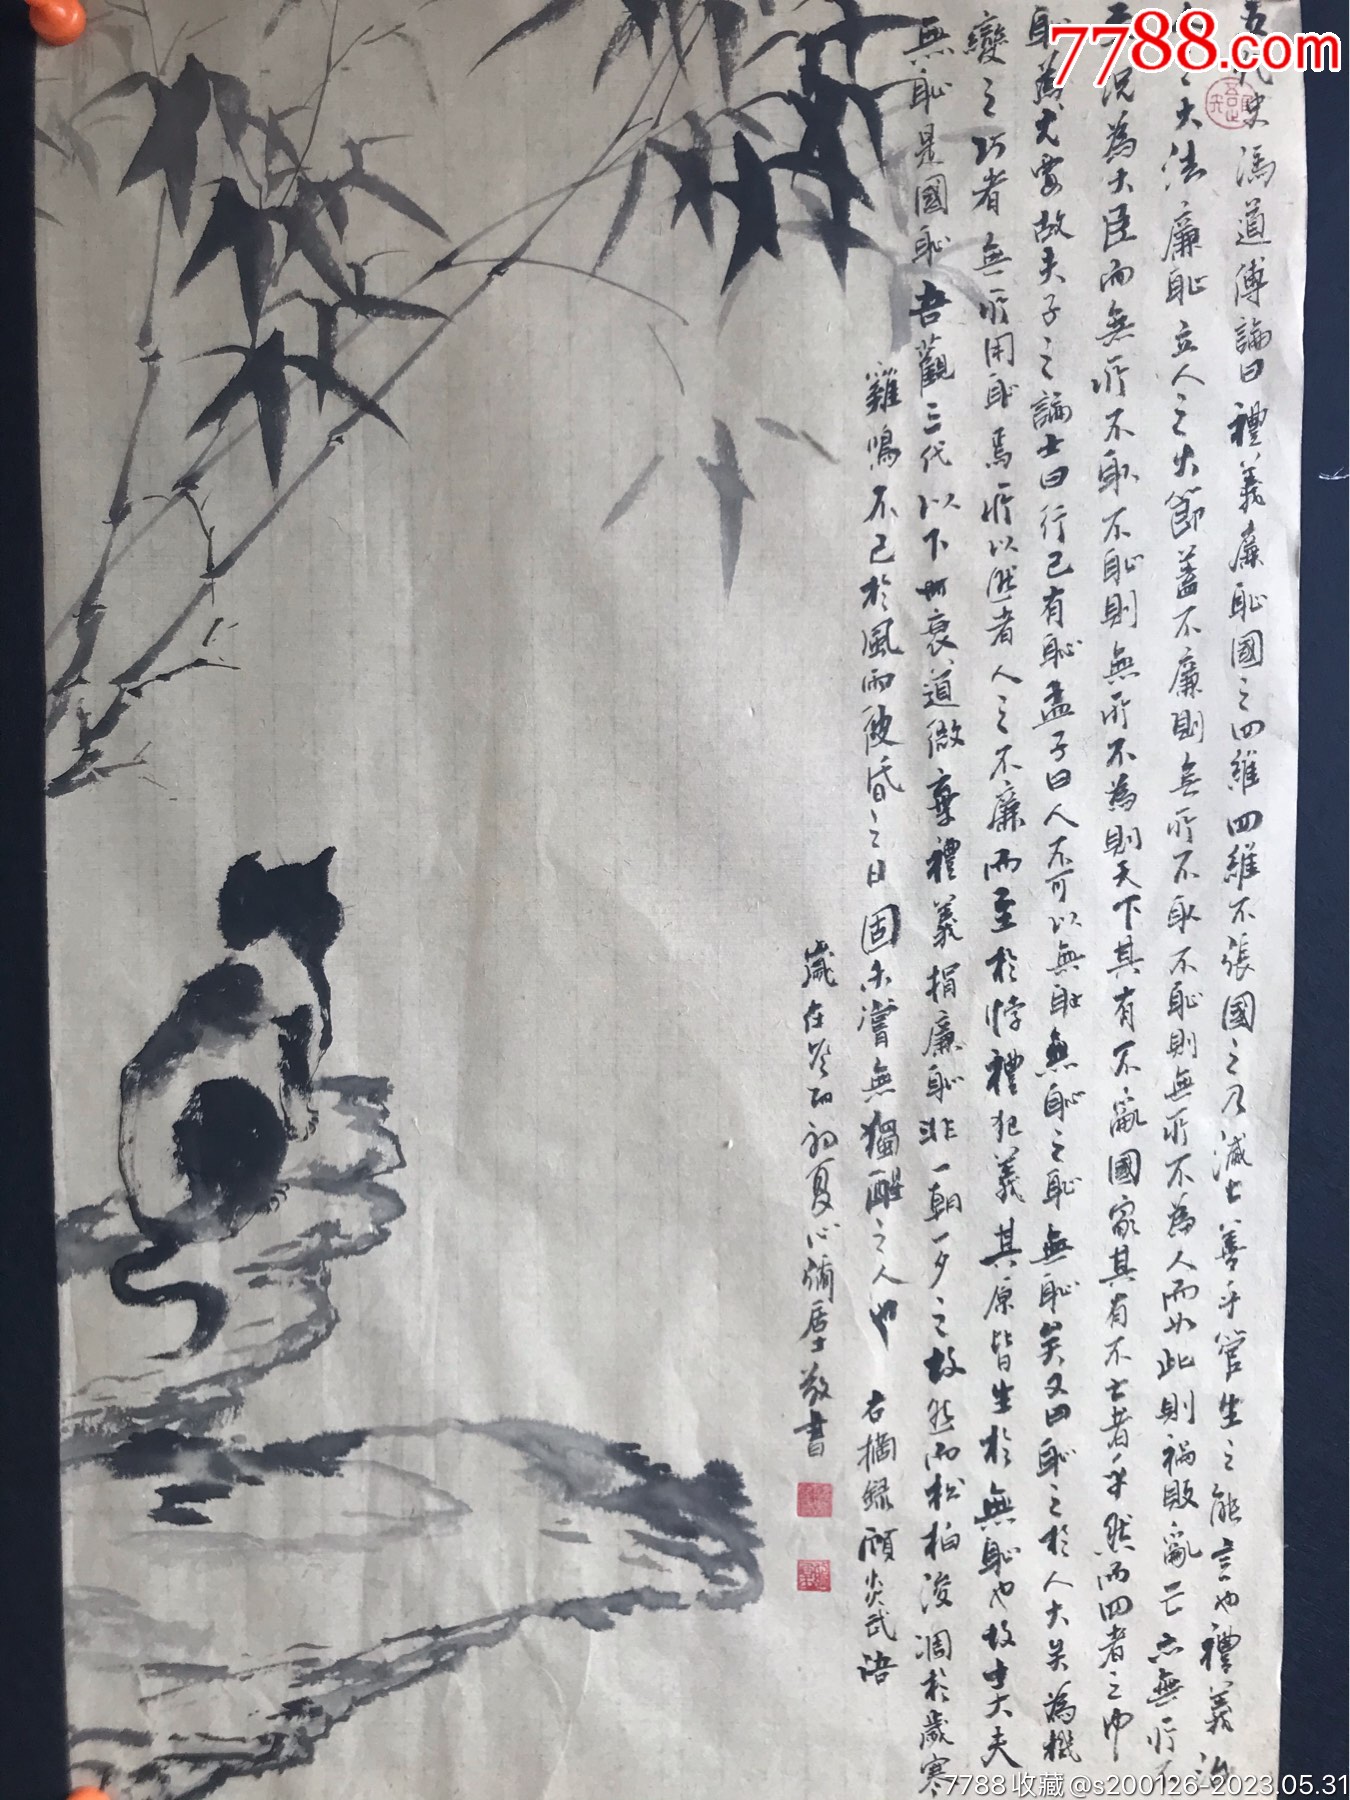 7788.com
五代史馮道傳論曰禮義廉恥國之四維四維不張國乃滅亡善乎管生之能言也禮義治
人之大法廉恥立人之大節蓋不廉則無所不取不恥則無所不為人而如此則禍敗亂亡亦無所不
至況為大臣而無所不取不恥則無所不為則天下其有不亂國家其有不亡者乎然而四者之中
恥為尤要故夫子之論士曰行己有恥孟子曰人不可以無恥無恥之恥無恥矣又曰恥之於人大矣為機
變之巧者無所用恥焉所以然者人之不廉而至於悖禮犯義其原皆生於無恥也故士大夫
無恥是國恥吾觀三代以下世衰道微棄禮義捐廉恥非一朝一夕之故然而松柏後凋於歲寒
雞鳴不已於風雨彼昏之日固未嘗無獨醒之人也 右摘録顧炎武語
歲在癸酉初夏心彌居士敬書
7788收藏@s200126-2023.05.31